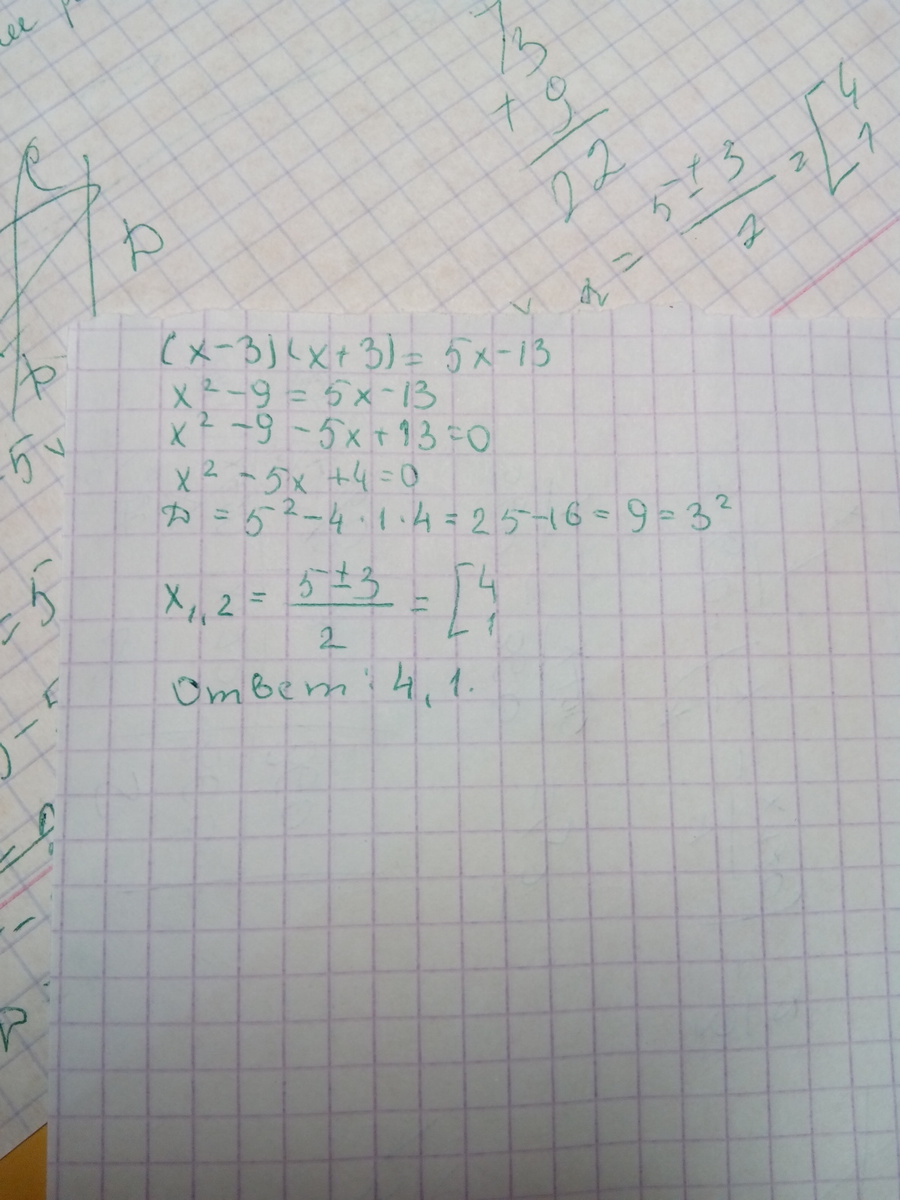 13
+ 9
22
= 5 ± 3 / 2 = [ 4 1
C
D
(x-3)(x+3) = 5x-13
x² -9 = 5x-13
x² -9 -5x+13=0
x² -5x +4=0
D = 5²-4·1·4=25-16=9=3²
x₁,₂ = 5±3 / 2 = [ 4 1
Ответ: 4, 1.